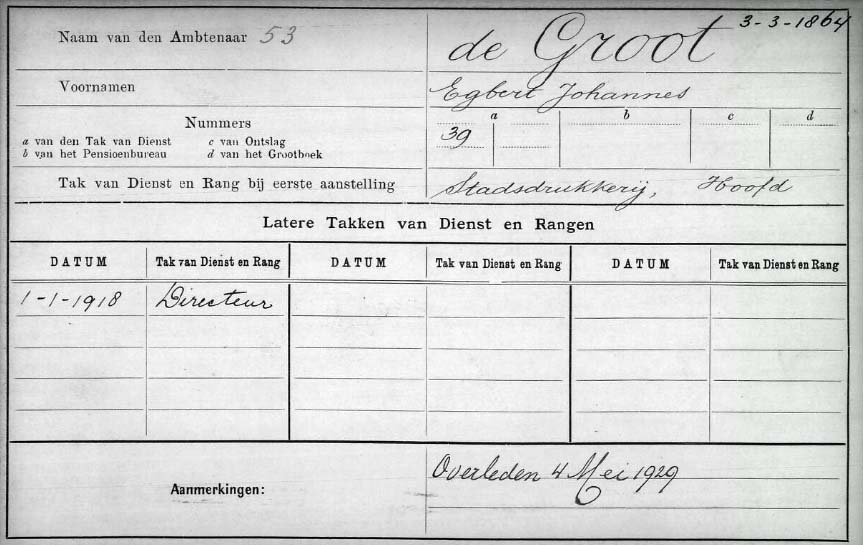 Naam van den Ambtenaar 53 de Groot 3-3-1864
Voornamen Egbert Johannes
Nummers a b c d
a van den Tak van Dienst c van Ontslag 39
b van het Pensioenbureau d van het Grootboek
Tak van Dienst en Rang bij eerste aanstelling Stadsdrukkerij, Hoofd
Latere Takken van Dienst en Rangen
DATUM Tak van Dienst en Rang DATUM Tak van Dienst en Rang DATUM Tak van Dienst en Rang
1-1-1918 Directeur
Aanmerkingen: Overleden 4 Mei 1929